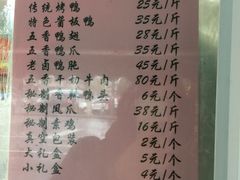 传统烤鸭 25元/斤
特色酱板鸭 35元/斤
五香鸭翅 28元/斤
五香鸭爪 35元/斤
老卤鸭肫 45元/斤
五香干切牛肉 80元/斤
秘制鸭头 6元/个
秘制风 38元/斤
秘制素鸡 16元/斤
真空包装 2元/个
大礼盒 5元/个
小礼盒 4元/个